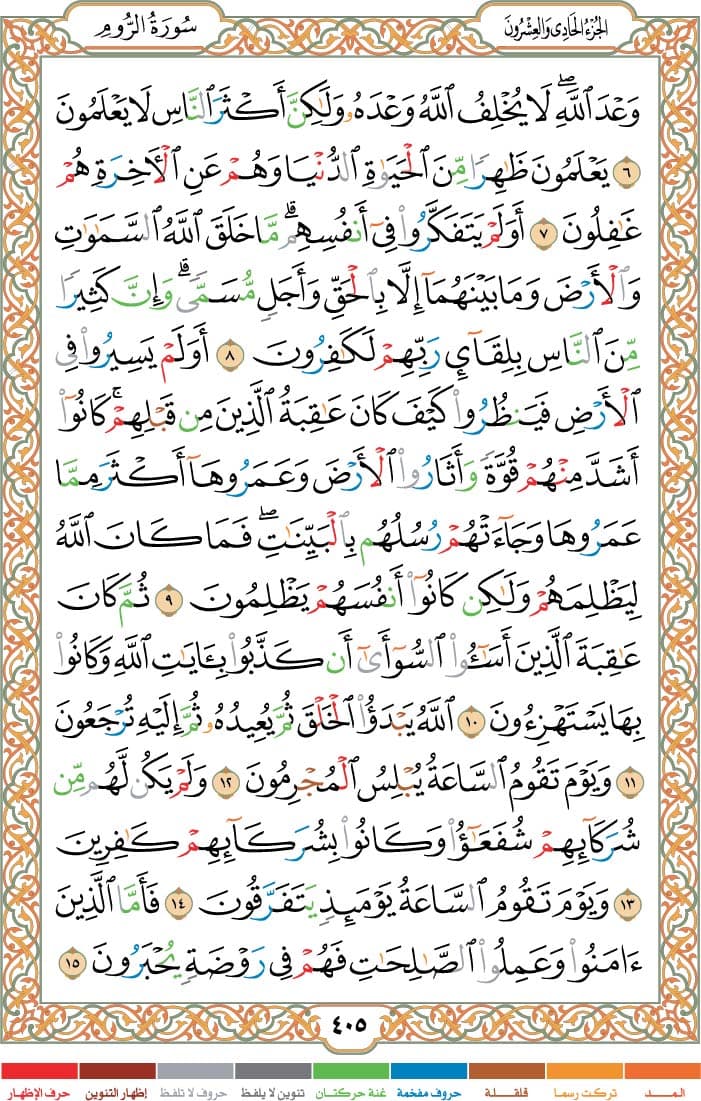 سُورَةُ الرُّومِ
الجُزْءُ الحَادِي وَالعِشْرُونَ
وَعْدَ ٱللَّهِ ۖ لَا يُخْلِفُ ٱللَّهُ وَعْدَهُۥ وَلَٰكِنَّ أَكْثَرَ ٱلنَّاسِ لَا يَعْلَمُونَ
٦ يَعْلَمُونَ ظَٰهِرًا مِّنَ ٱلْحَيَوٰةِ ٱلدُّنْيَا وَهُمْ عَنِ ٱلْأٓخِرَةِ هُمْ
غَٰفِلُونَ ٧ أَوَلَمْ يَتَفَكَّرُوا۟ فِىٓ أَنفُسِهِم ۗ مَّا خَلَقَ ٱللَّهُ ٱلسَّمَٰوَٰتِ
وَٱلْأَرْضَ وَمَا بَيْنَهُمَآ إِلَّا بِٱلْحَقِّ وَأَجَلٍ مُّسَمًّى ۗ وَإِنَّ كَثِيرًا
مِّنَ ٱلنَّاسِ بِلِقَآئِ رَبِّهِمْ لَكَٰفِرُونَ ٨ أَوَلَمْ يَسِيرُوا۟ فِى
ٱلْأَرْضِ فَيَنظُرُوا۟ كَيْفَ كَانَ عَٰقِبَةُ ٱلَّذِينَ مِن قَبْلِهِمْ ۚ كَانُوٓا۟
أَشَدَّ مِنْهُمْ قُوَّةً وَأَثَارُوا۟ ٱلْأَرْضَ وَعَمَرُوهَآ أَكْثَرَ مِمَّا
عَمَرُوهَا وَجَآءَتْهُمْ رُسُلُهُم بِٱلْبَيِّنَٰتِ ۖ فَمَا كَانَ ٱللَّهُ
لِيَظْلِمَهُمْ وَلَٰكِن كَانُوٓا۟ أَنفُسَهُمْ يَظْلِمُونَ ٩ ثُمَّ كَانَ
عَٰقِبَةَ ٱلَّذِينَ أَسَٰٓـُٔوا۟ ٱلسُّوٓأَىٰٓ أَن كَذَّبُوا۟ بِـَٔايَٰتِ ٱللَّهِ وَكَانُوا۟
بِهَا يَسْتَهْزِءُونَ ١٠ ٱللَّهُ يَبْدَؤُا۟ ٱلْخَلْقَ ثُمَّ يُعِيدُهُۥ ثُمَّ إِلَيْهِ تُرْجَعُونَ
١١ وَيَوْمَ تَقُومُ ٱلسَّاعَةُ يُبْلِسُ ٱلْمُجْرِمُونَ ١٢ وَلَمْ يَكُن لَّهُم مِّن
شُرَكَآئِهِمْ شُفَعَٰٓؤُا۟ وَكَانُوا۟ بِشُرَكَآئِهِمْ كَٰفِرِينَ
١٣ وَيَوْمَ تَقُومُ ٱلسَّاعَةُ يَوْمَئِذٍ يَتَفَرَّقُونَ ١٤ فَأَمَّا ٱلَّذِينَ
ءَامَنُوا۟ وَعَمِلُوا۟ ٱلصَّٰلِحَٰتِ فَهُمْ فِى رَوْضَةٍ يُحْبَرُونَ ١٥
٤٠٥
المـد تركت رسما قلقلة حروف مفخمة غنة حركتان تنوين لا يلفظ حروف لا تلفظ إظهار التنوين حرف الإظهار